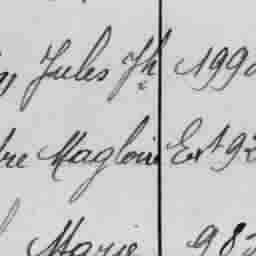 Jules Jh 199
re Magloire Ext 92
Marie 98